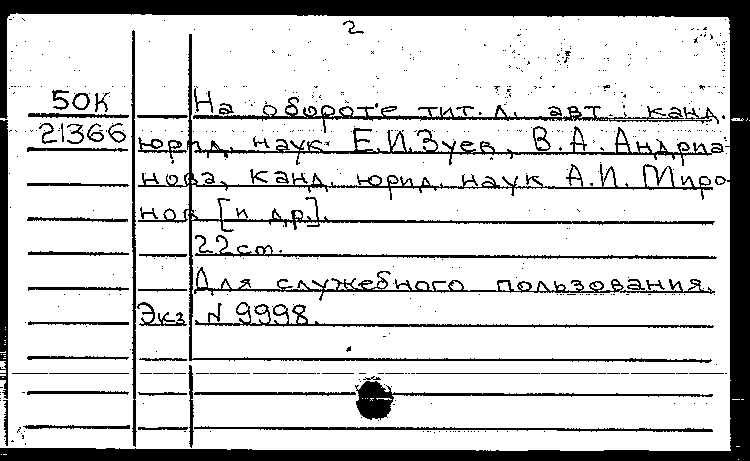 2
50К На обороте тит. л. авт.: канд.
21366 юрид. наук Е.И.Зуев, В.А.Андриа-
нова, канд. юрид. наук А.И. Миро-
нов [и др.].
22 cm.
Для служебного пользования.
Экз. N 9998.